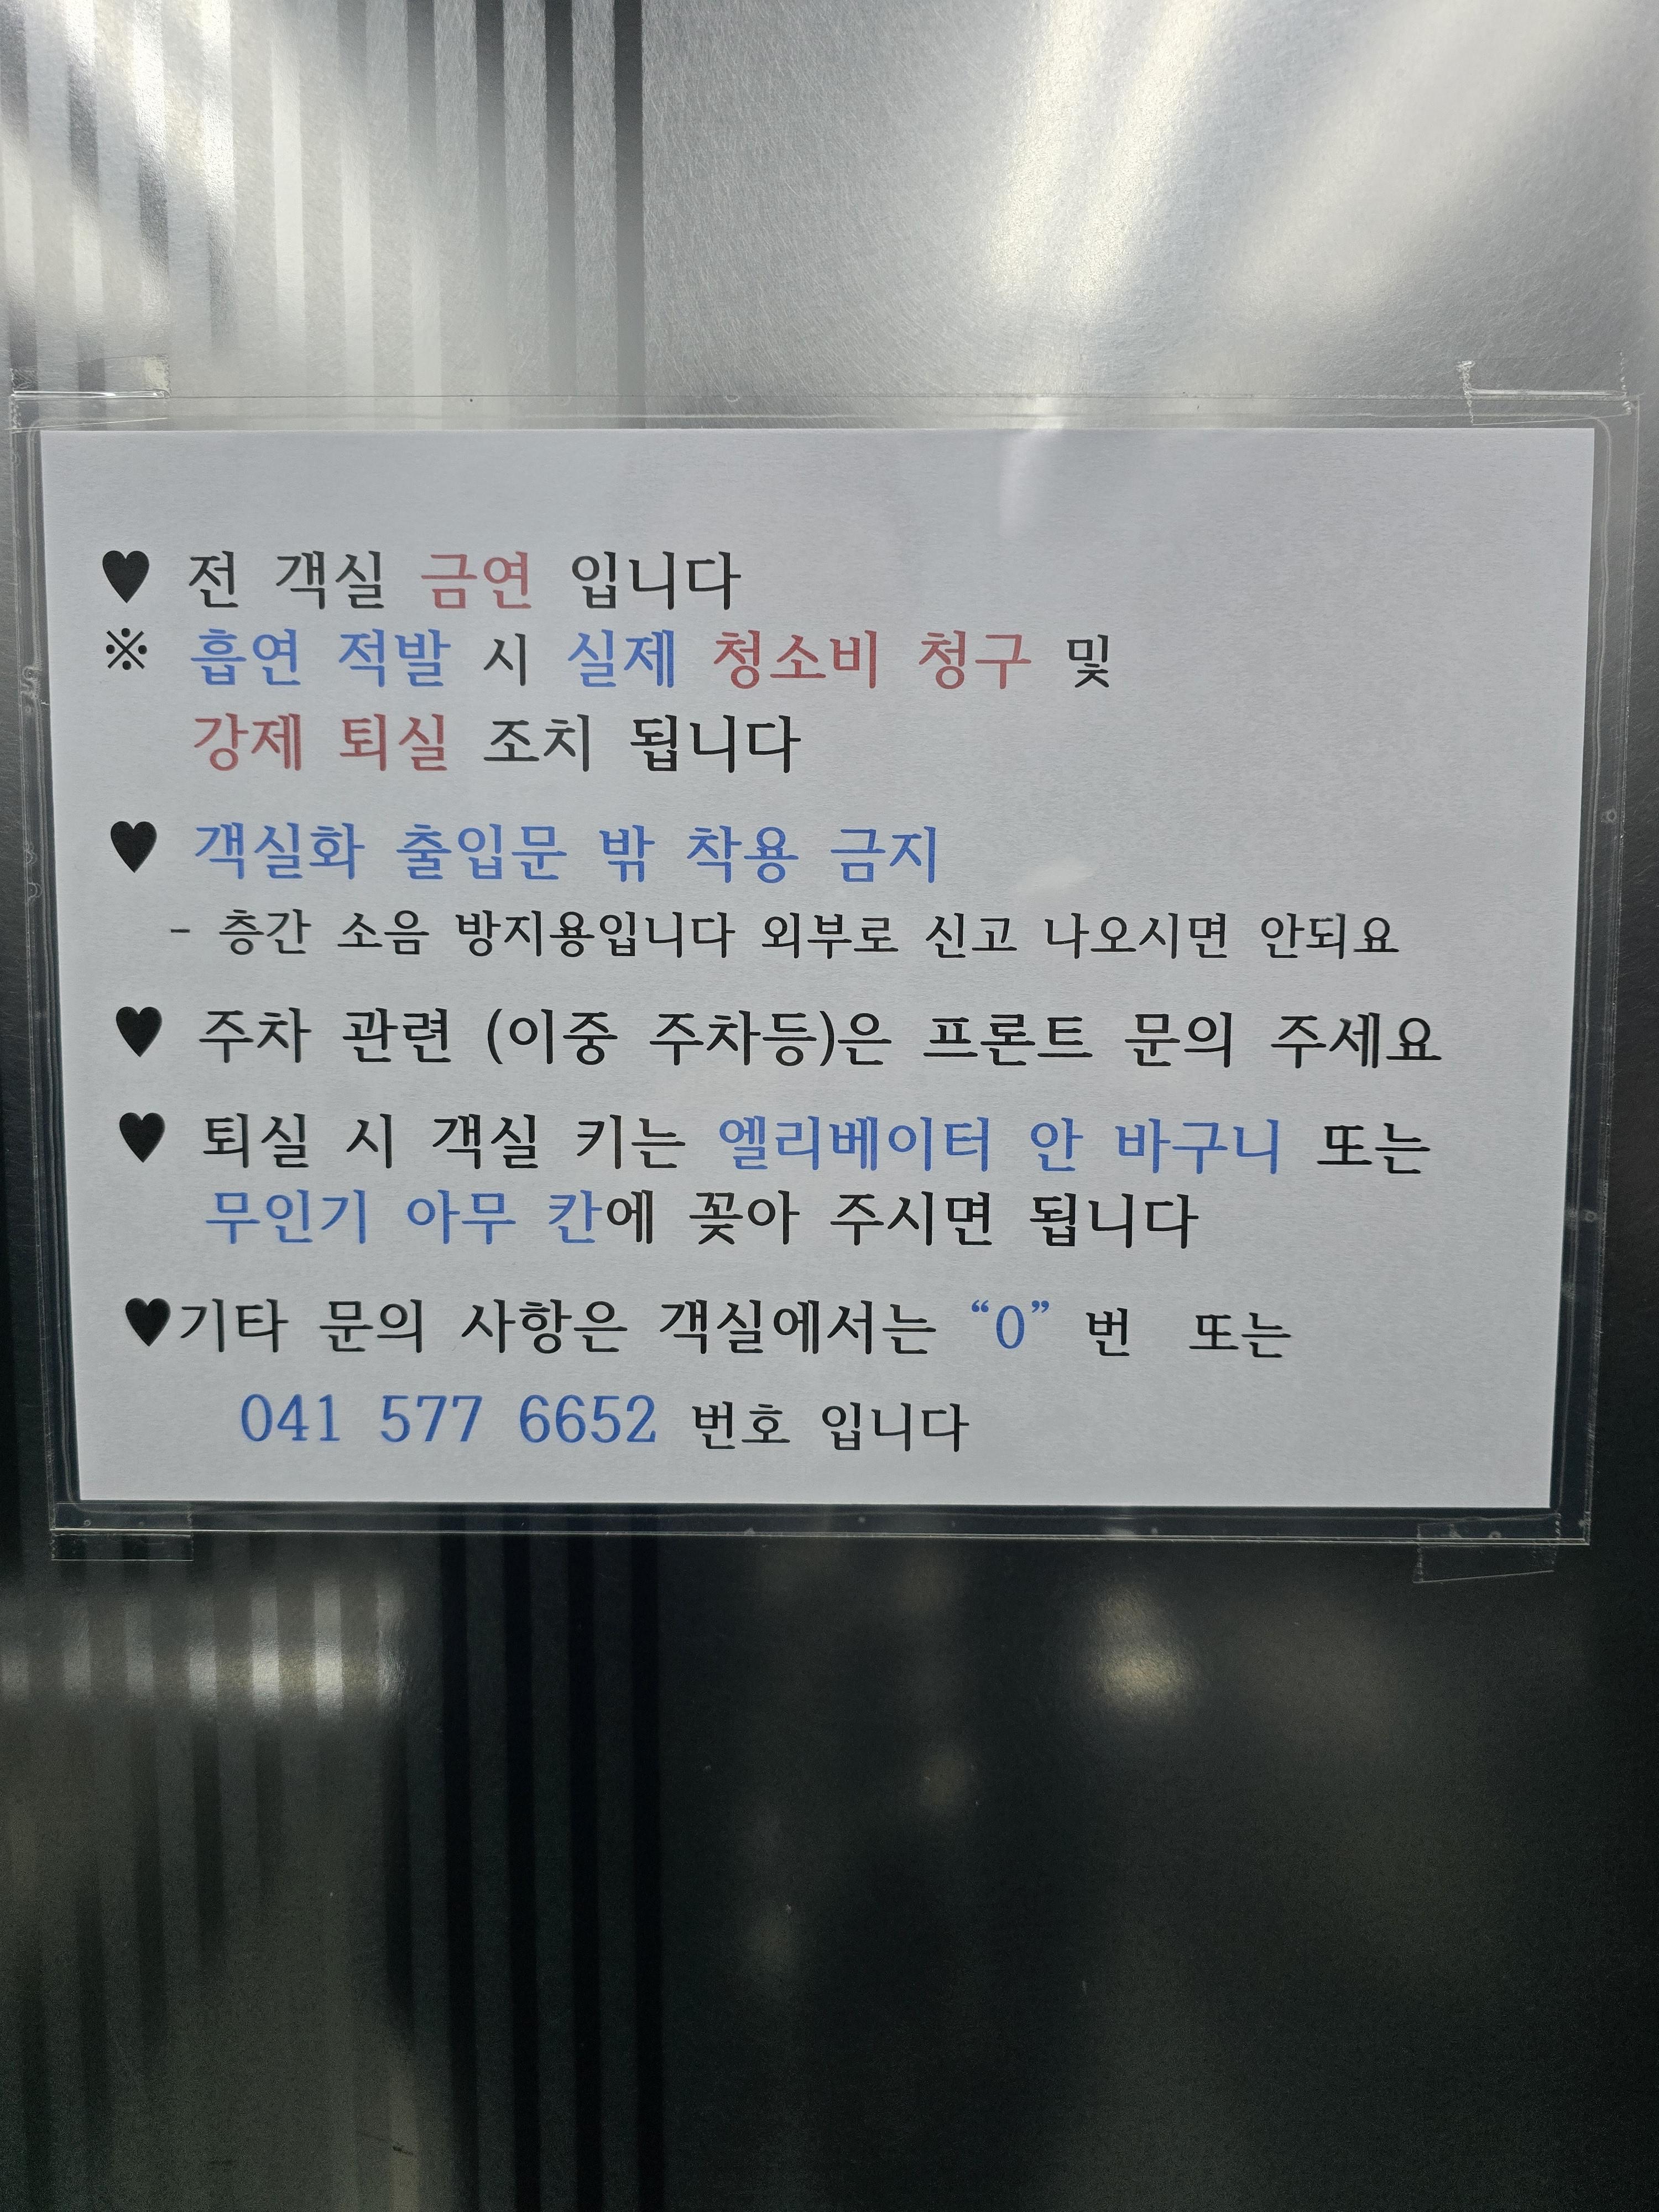 ♥ 전 객실 금연 입니다
※ 흡연 적발 시 실제 청소비 청구 및
강제 퇴실 조치 됩니다
♥ 객실화 출입문 밖 착용 금지
- 층간 소음 방지용입니다 외부로 신고 나오시면 안되요
♥ 주차 관련 (이중 주차등)은 프론트 문의 주세요
♥ 퇴실 시 객실 키는 엘리베이터 안 바구니 또는
무인기 아무 칸에 꽂아 주시면 됩니다
♥기타 문의 사항은 객실에서는 “0” 번 또는
041 577 6652 번호 입니다